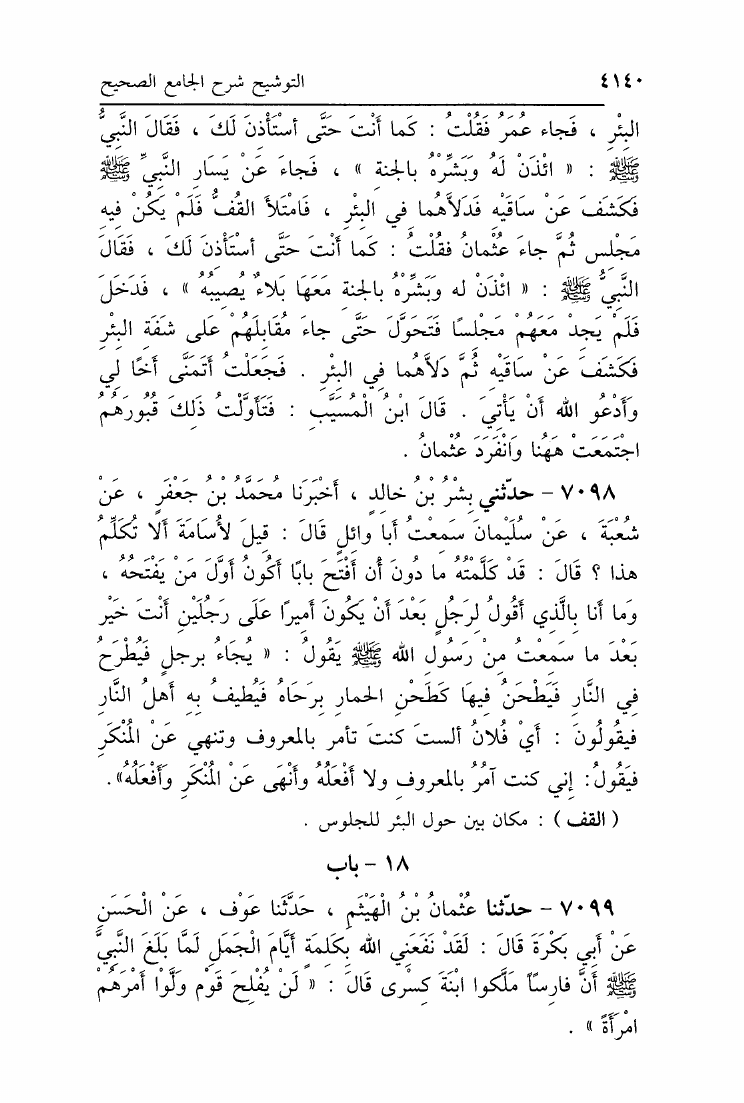 ٤١٤٠ التوشيح شرح الجامع الصحيح
البِئْرِ ، فَجاء عُمَرُ فَقُلْتُ : كَما أَنْتَ حَتَّى أسْتَأْذِنَ لَكَ ، فَقَالَ النَّبِيُّ
ﷺ : « ائْذَنْ لَهُ وَبَشِّرْهُ بالجنة » ، فَجاءَ عَنْ يَسَارِ النَّبِيِّ ﷺ
فَكَشَفَ عَنْ سَاقَيْهِ فَدَلاَّهُما فِي البِئْرِ ، فَامْتَلأَ القُفُّ فَلَمْ يَكُنْ فِيهِ
مَجْلِس ثُمَّ جاءَ عُثْمانُ فقُلْتُ : كَما أَنْتَ حَتَّى أسْتَأْذِنَ لَكَ ، فَقَالَ
النَّبِيُّ ﷺ : « ائْذَنْ له وَبَشِّرْهُ بالجنةِ مَعَهَا بَلاءٌ يُصِيبُهُ » ، فَدَخَلَ
فَلَمْ يَجِدْ مَعَهُمْ مَجْلِسًا فَتَحَوَّلَ حَتَّى جاءَ مُقَابِلَهُمْ عَلى شَفَةِ البِئْرِ
فَكَشَفَ عَنْ سَاقَيْهِ ثُمَّ دَلاَّهُما في البِئْرِ . فَجَعَلْتُ أَتَمَنَّى أَخًا لِي
وَأَدْعُو الله أَنْ يَأْتِيَ . قَالَ ابْنُ الْمُسَيَّبِ : فَتَأَوَّلْتُ ذلِكَ قُبُورَهُمُ
اجْتَمَعَتْ هٰهُنا وَانْفَرَدَ عُثْمانُ .
٧٠٩٨ - حدّثني بِشْرُ بْنُ خالِدٍ ، أَخْبَرَنا مُحَمَّدُ بْنُ جَعْفَرٍ ، عَنْ
شُعْبَةَ ، عَنْ سُلَيْمانَ سَمِعْتُ أَبا وائِلٍ قَالَ : قِيلَ لأُسَامَةَ أَلا تُكَلِّمُ
هذا ؟ قَالَ : قَدْ كَلَّمْتُهُ ما دُونَ أَن أَفْتَحَ بابًا أَكُونُ أَوَّلَ مَنْ يَفْتَحُهُ ،
وَما أَنا بِالَّذِي أَقُولُ لِرَجُلٍ بَعْدَ أَنْ يَكُونَ أَمِيرًا عَلَى رَجُلَيْنِ أَنْتَ خَيْر
بَعْدَ ما سَمِعْتُ مِنْ رَسُولِ الله ﷺ يَقُولُ : « يُجَاءُ برجلٍ فَيُطْرَحُ
فِي النَّارِ فَيَطْحَنُ فِيهَا كَطَحْنِ الحمارِ بِرَحَاهُ فَيُطِيفُ بِهِ أَهلُ النَّارِ
فيقُولُونَ : أَيْ فُلانُ ألستَ كنتَ تأمر بالمعروف وتنهي عَنْ الْمُنْكَرِ
فيَقُولُ: إِني كنت آمُرُ بالمعروفِ ولا أَفْعَلُهُ وأَنْهَى عَنْ الْمُنْكَرِ وَأَفْعَلُهُ».
( القف ) : مكان بين حول البئر للجلوس .
١٨ - باب
٧٠٩٩ - حدّثنا عُثْمانُ بْنُ الْهَيْثَمِ ، حَدَّثَنا عَوْف ، عَنْ الْحَسَنِ
عَنْ أَبِي بَكْرَةَ قَالَ : لَقَدْ نَفَعَنِي الله بِكَلِمَةٍ أَيَّامَ الْجَمَلِ لَمَّا بَلَغَ النَّبِيَّ
ﷺ أَنَّ فارِسًا مَلَّكوا ابْنَةَ كِسْرَى قَالَ : « لَنْ يُفْلِحَ قَوْم وَلَّوْا أَمْرَهُمْ
امْرَأَةً » .